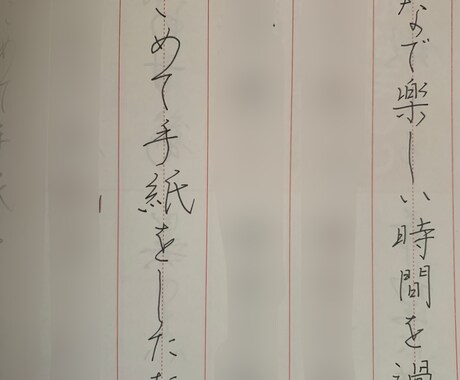 なで楽しい時間を過
めて手紙をした